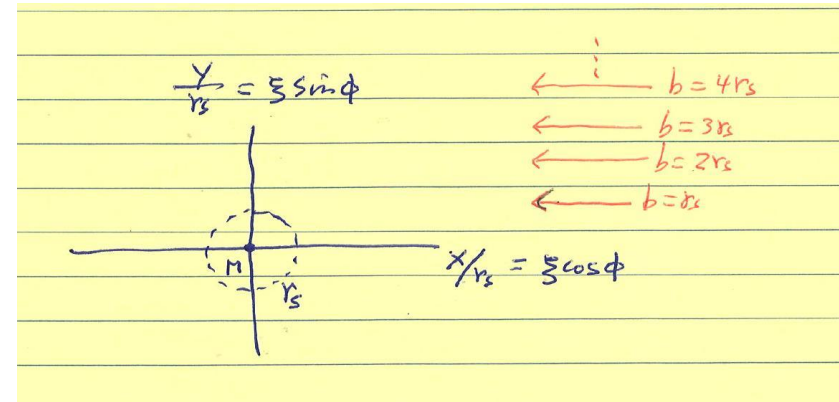 y/rs = ξ sinϕ
b = 4rs
b = 3rs
b = 2rs
b = rs
M
rs
x/rs = ξ cosϕ